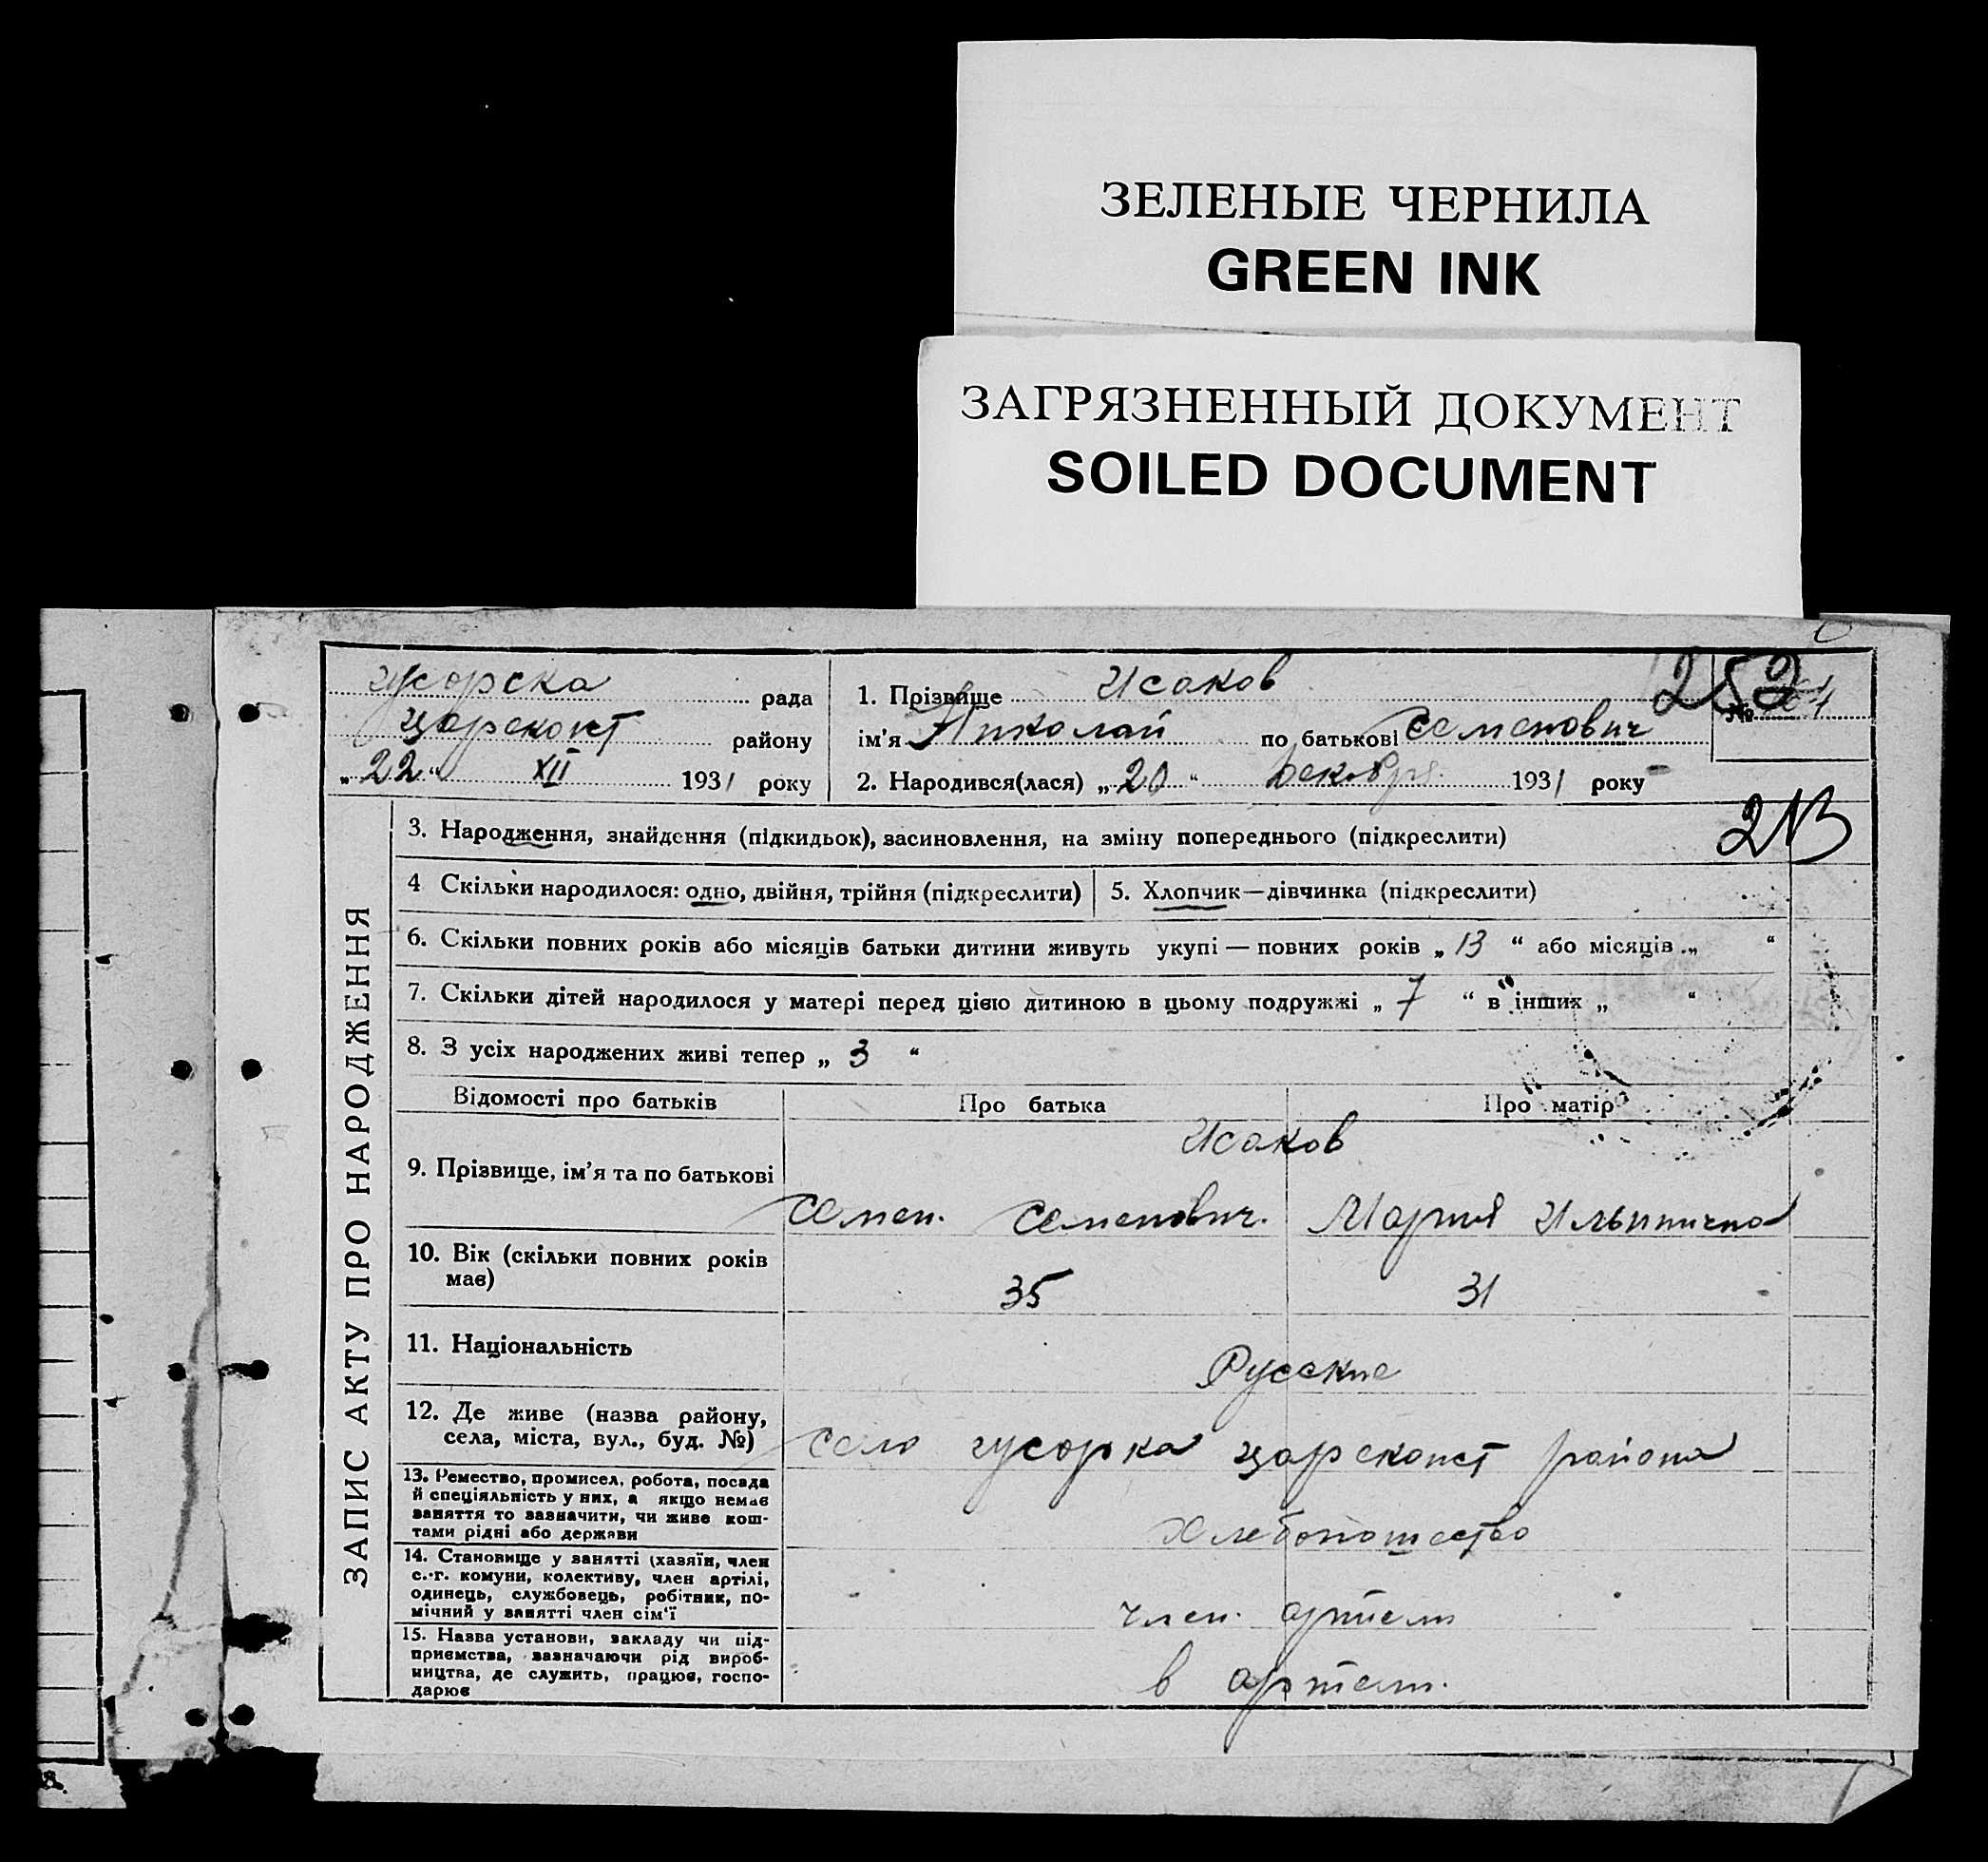 ЗЕЛЕНЫЕ ЧЕРНИЛА
GREEN INK
ЗАГРЯЗНЕННЫЙ ДОКУМЕНТ
SOILED DOCUMENT
гусорска рада
царсконст району
„22“ XII 1931 року
1. Прізвище Исаков
ім'я Николай по батькові Семенович
2. Народився(лася) „20“ Декабря 1931 року
252
№
213
ЗАПИС АКТУ ПРО НАРОДЖЕННЯ
3. Народження, знайдення (підкидьок), засиновлення, на зміну попереднього (підкреслити)
4 Скільки народилося: одно, двійня, трійня (підкреслити)
5. Хлопчик—дівчинка (підкреслити)
6. Скільки повних років або місяців батьки дитини живуть укупі — повних років „13“ або місяців „ “
7. Скільки дітей народилося у матері перед цією дитиною в цьому подружжі „7“ в інших „ “
8. З усіх народжених живі тепер „3“
Відомості про батьків Про батька Про матір
Исаков
9. Прізвище, ім'я та по батькові
Семен. Семенович. Мария Ильинична
10. Вік (скільки повних років
має)
35 31
11. Національність
Русские
12. Де живе (назва району,
села, міста, вул., буд. №)
село гусорка царсконст района
13. Ремество, промисел, робота, посада
й спеціяльність у них, а якщо немає
заняття то зазначити, чи живе кош-
тами рідні або держави
хлебопашество
14. Становище у занятті (хазяїн, член
с.-г. комуни, колективу, член артілі,
одинець, службовець, робітник, по-
мічний у занятті член сім'ї
член. артели
15. Назва установи, закладу чи під-
приємства, зазначаючи рід вироб-
ництва, де служить, працює, госпо-
дарює
в артели.